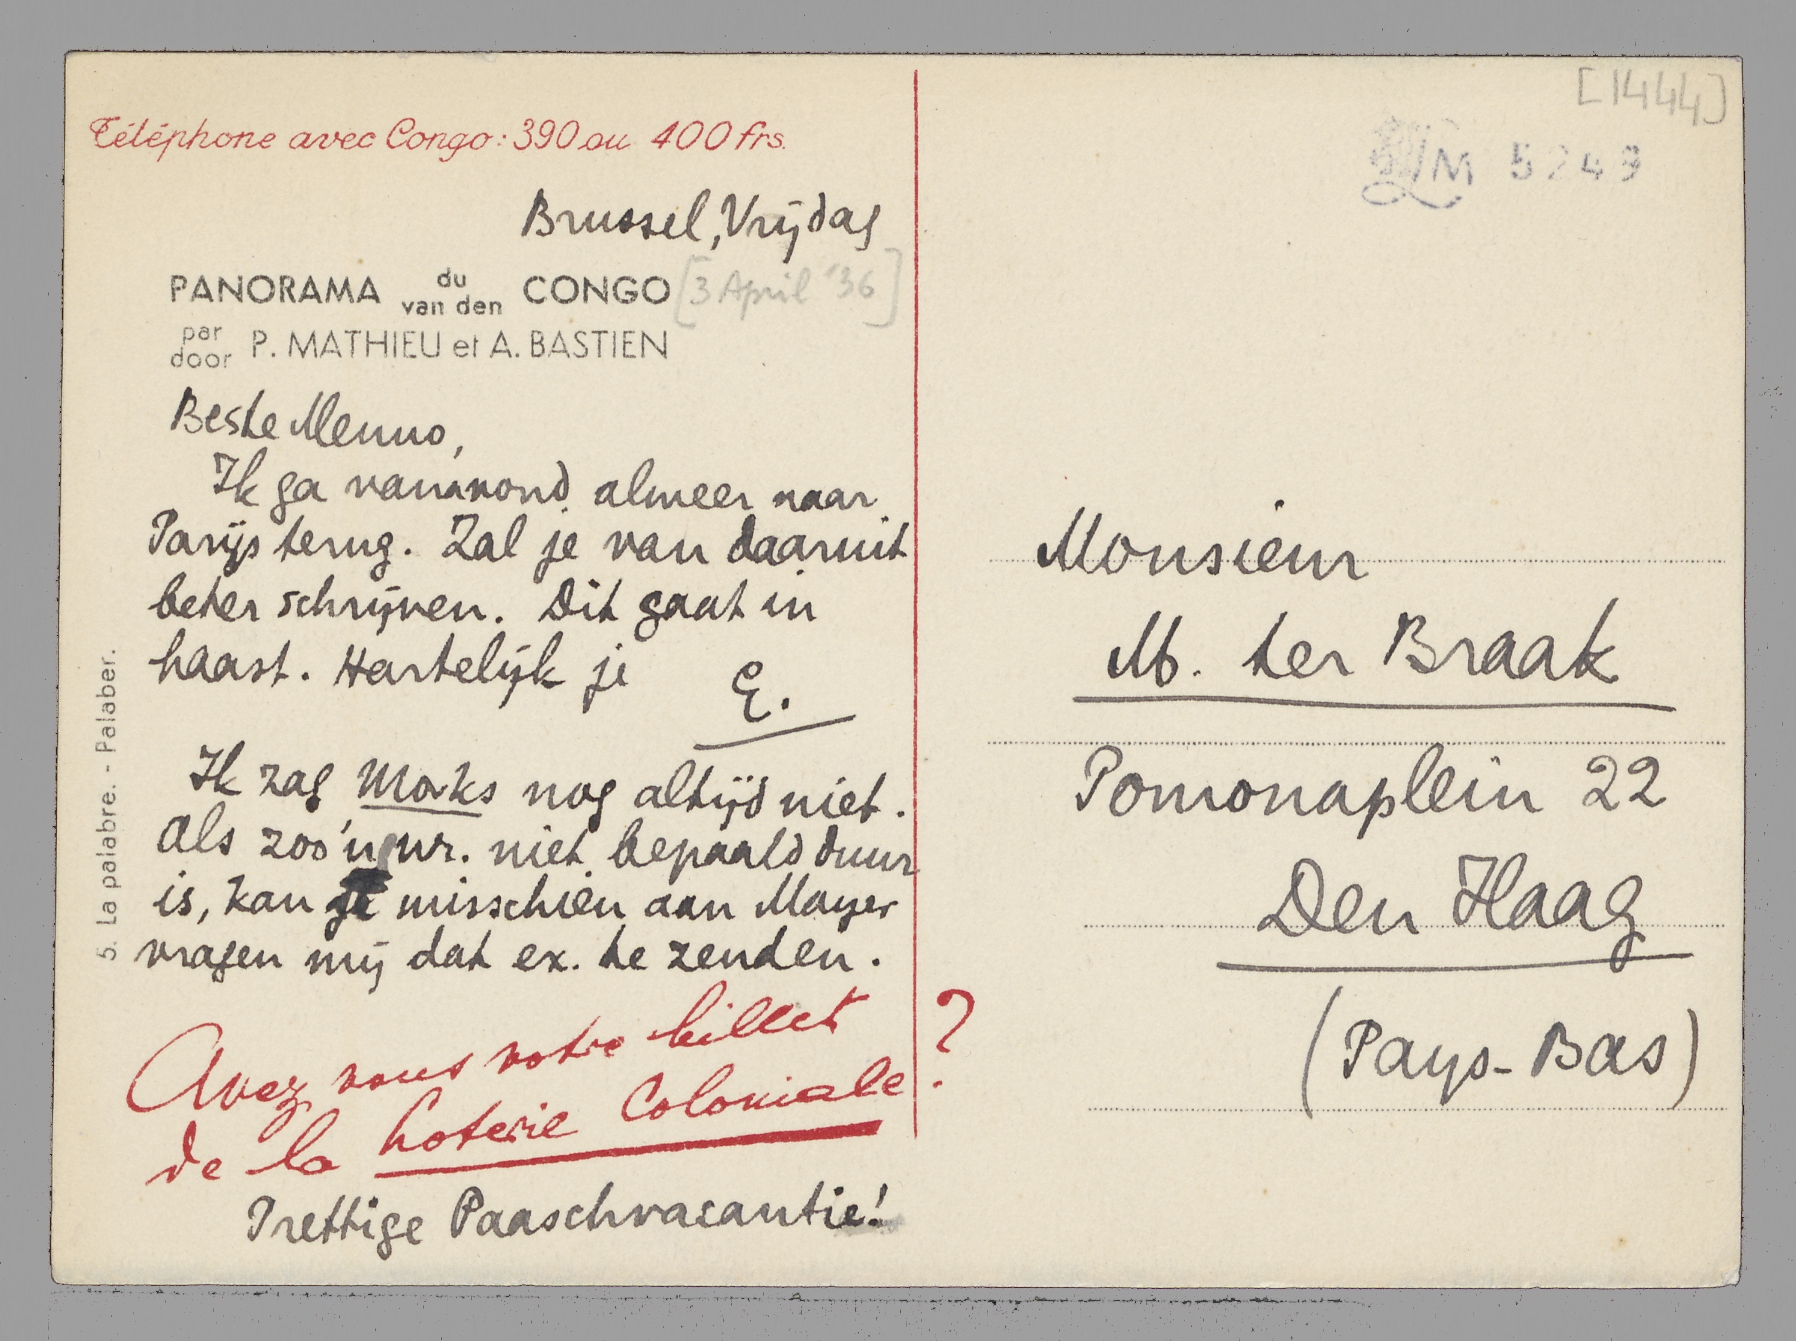 [1444]
LM M 5249
Téléphone avec Congo: 390 ou 400 frs.
Brussel, Vrijdag
PANORAMA du van den CONGO [3 April '36]
par door P. MATHIEU et A. BASTIEN
Beste Menno,
Ik ga vanavond alweer naar
Parijs terug. Zal je van daaruit
beter schrijven. Dit gaat in
haast. Hartelijk je
E.
Ik zag Maks nog altijd niet.
Als zoo'n nr. niet bepaald duur
is, kan je misschien aan Mayer
vragen mij dat ex. te zenden.
Avez vous votre billet
de la Loterie Coloniale ?
Prettige Paaschvacantie!
5. La palabre. - Palaber.
Monsieur
M. ter Braak
Pomonaplein 22
Den Haag
(Pays-Bas)